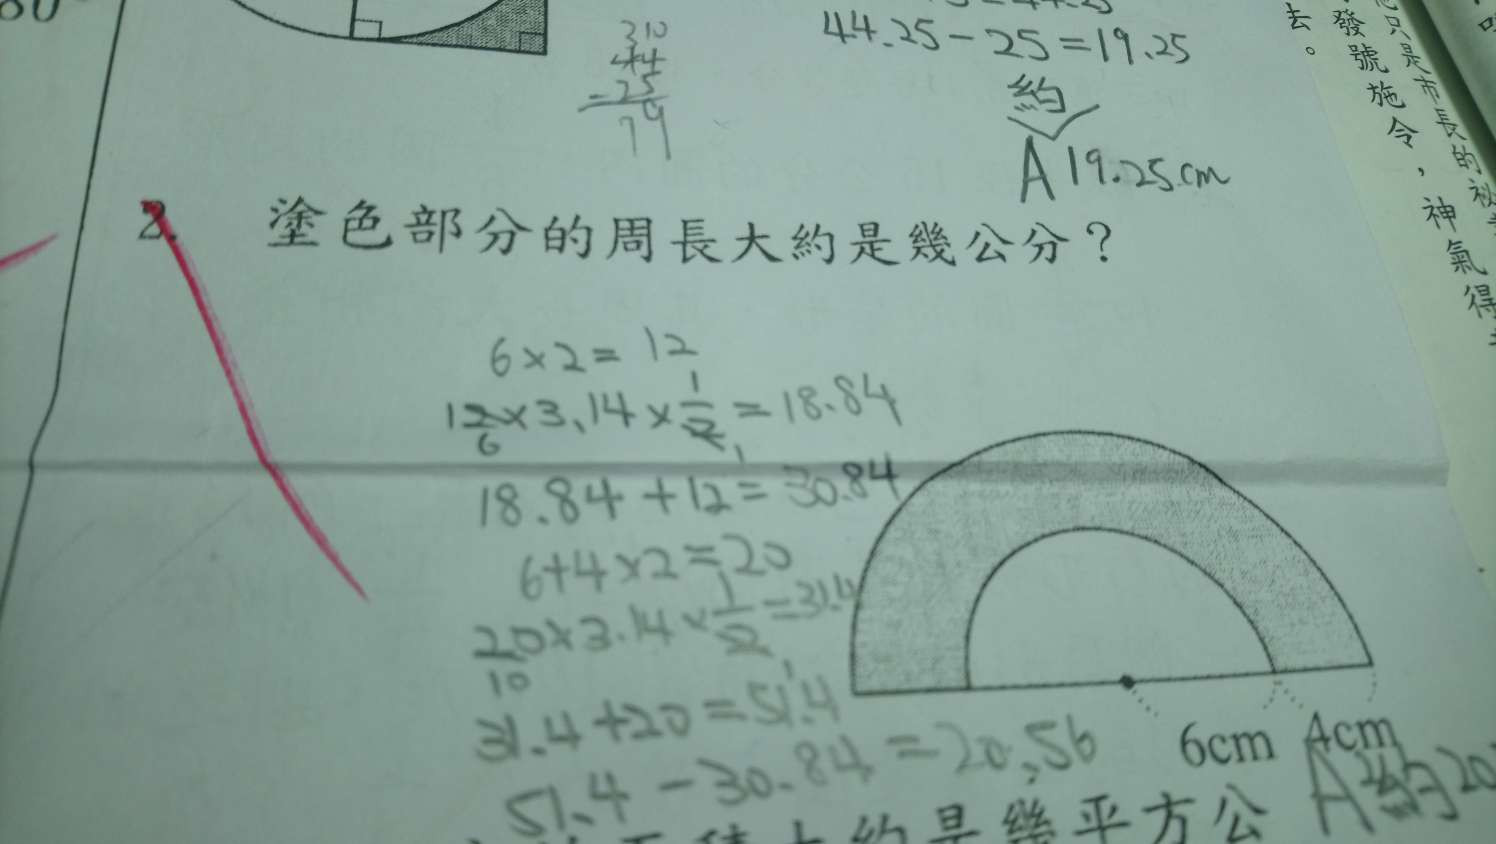 44.25-25=19.25
310
44
-25
19
約
A 19.25cm
2. 塗色部分的周長大約是幾公分?
6×2=12
12×3.14×1/2=18.84
6
1
18.84+12=30.84
6+4×2=20
20×3.14×1/2=31.4
10
1
31.4+20=51.4
51.4-30.84=20.56
6cm 4cm
A約20
大約是幾平方公
去。
發號施令,神氣得
只是市長的祕